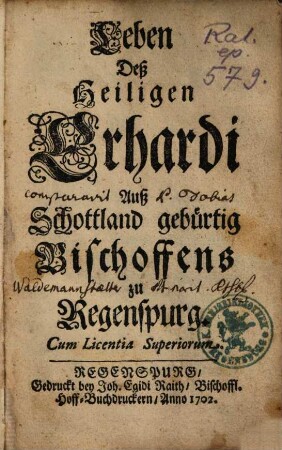 Leben
Rat.
ep.
579.
Deß
Heiligen
Erhardi
comparavit Auß P. Tobias
Schottland gebürtig
Bischoffens
zu
Regenspurg.
Cum Licentia Superiorum.
REGENSPURG/
Gedruckt bey Joh. Egidi Raith/ Bischoffl.
Hoff-Buchdruckern/ Anno 1702.